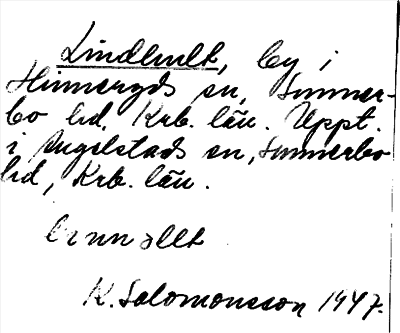 Lindhult, by i
Hinneryds sn, Sunner-
bo hd, Krb. län. Uppt.
i Angelstads sn, Sunnerbo
hd, Krb. län.
K. Salomonsson 1947.